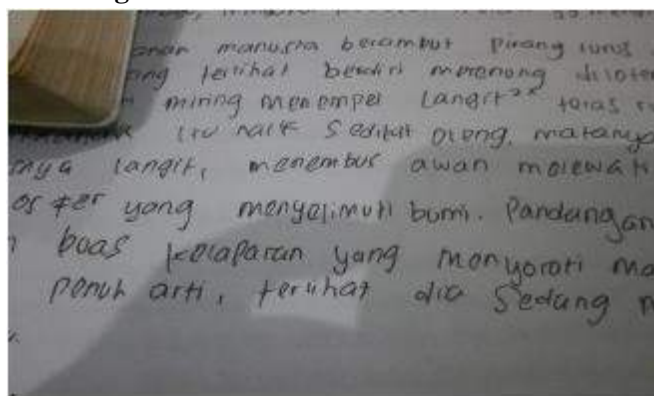 manusia berambut pirang lurus
terlihat berdiri merenung diloten
miring menempel Langit² teras
itu naik sedikit oleng, matanya
nya langit, menembus awan melewati
os fer yang menyelimuti bumi. Pandangan
buas kelaparan yang menyoroti ma
penuh arti, terlihat dia sedang m